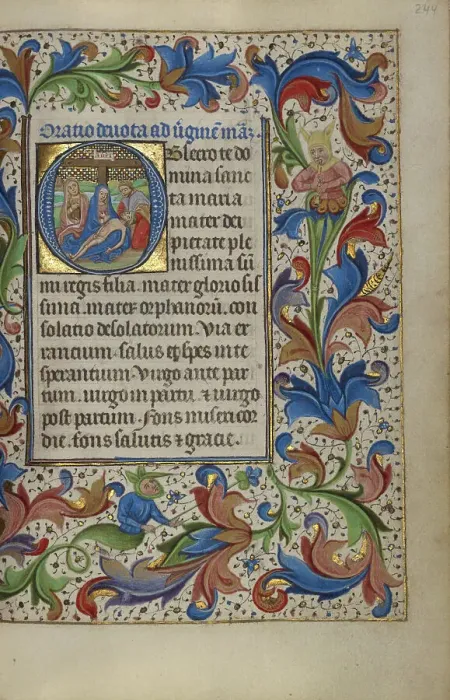 244
Oratio deuota ad ũgineͫ maͫ.
OBsecro te do
mina sanc
ta maria
mater dei
pietate ple
nissima sūͫ
mi regis filia. mater glorio sis
sima. mater orphanoru̅. con
solatio desolatorum. Via er
rantium. salus et spes in te
sperantium. Virgo ante par
tum. uirgo in partu. ⁊ uirgo
post partum. Fons misericor
die. fons salutis ⁊ gracie.